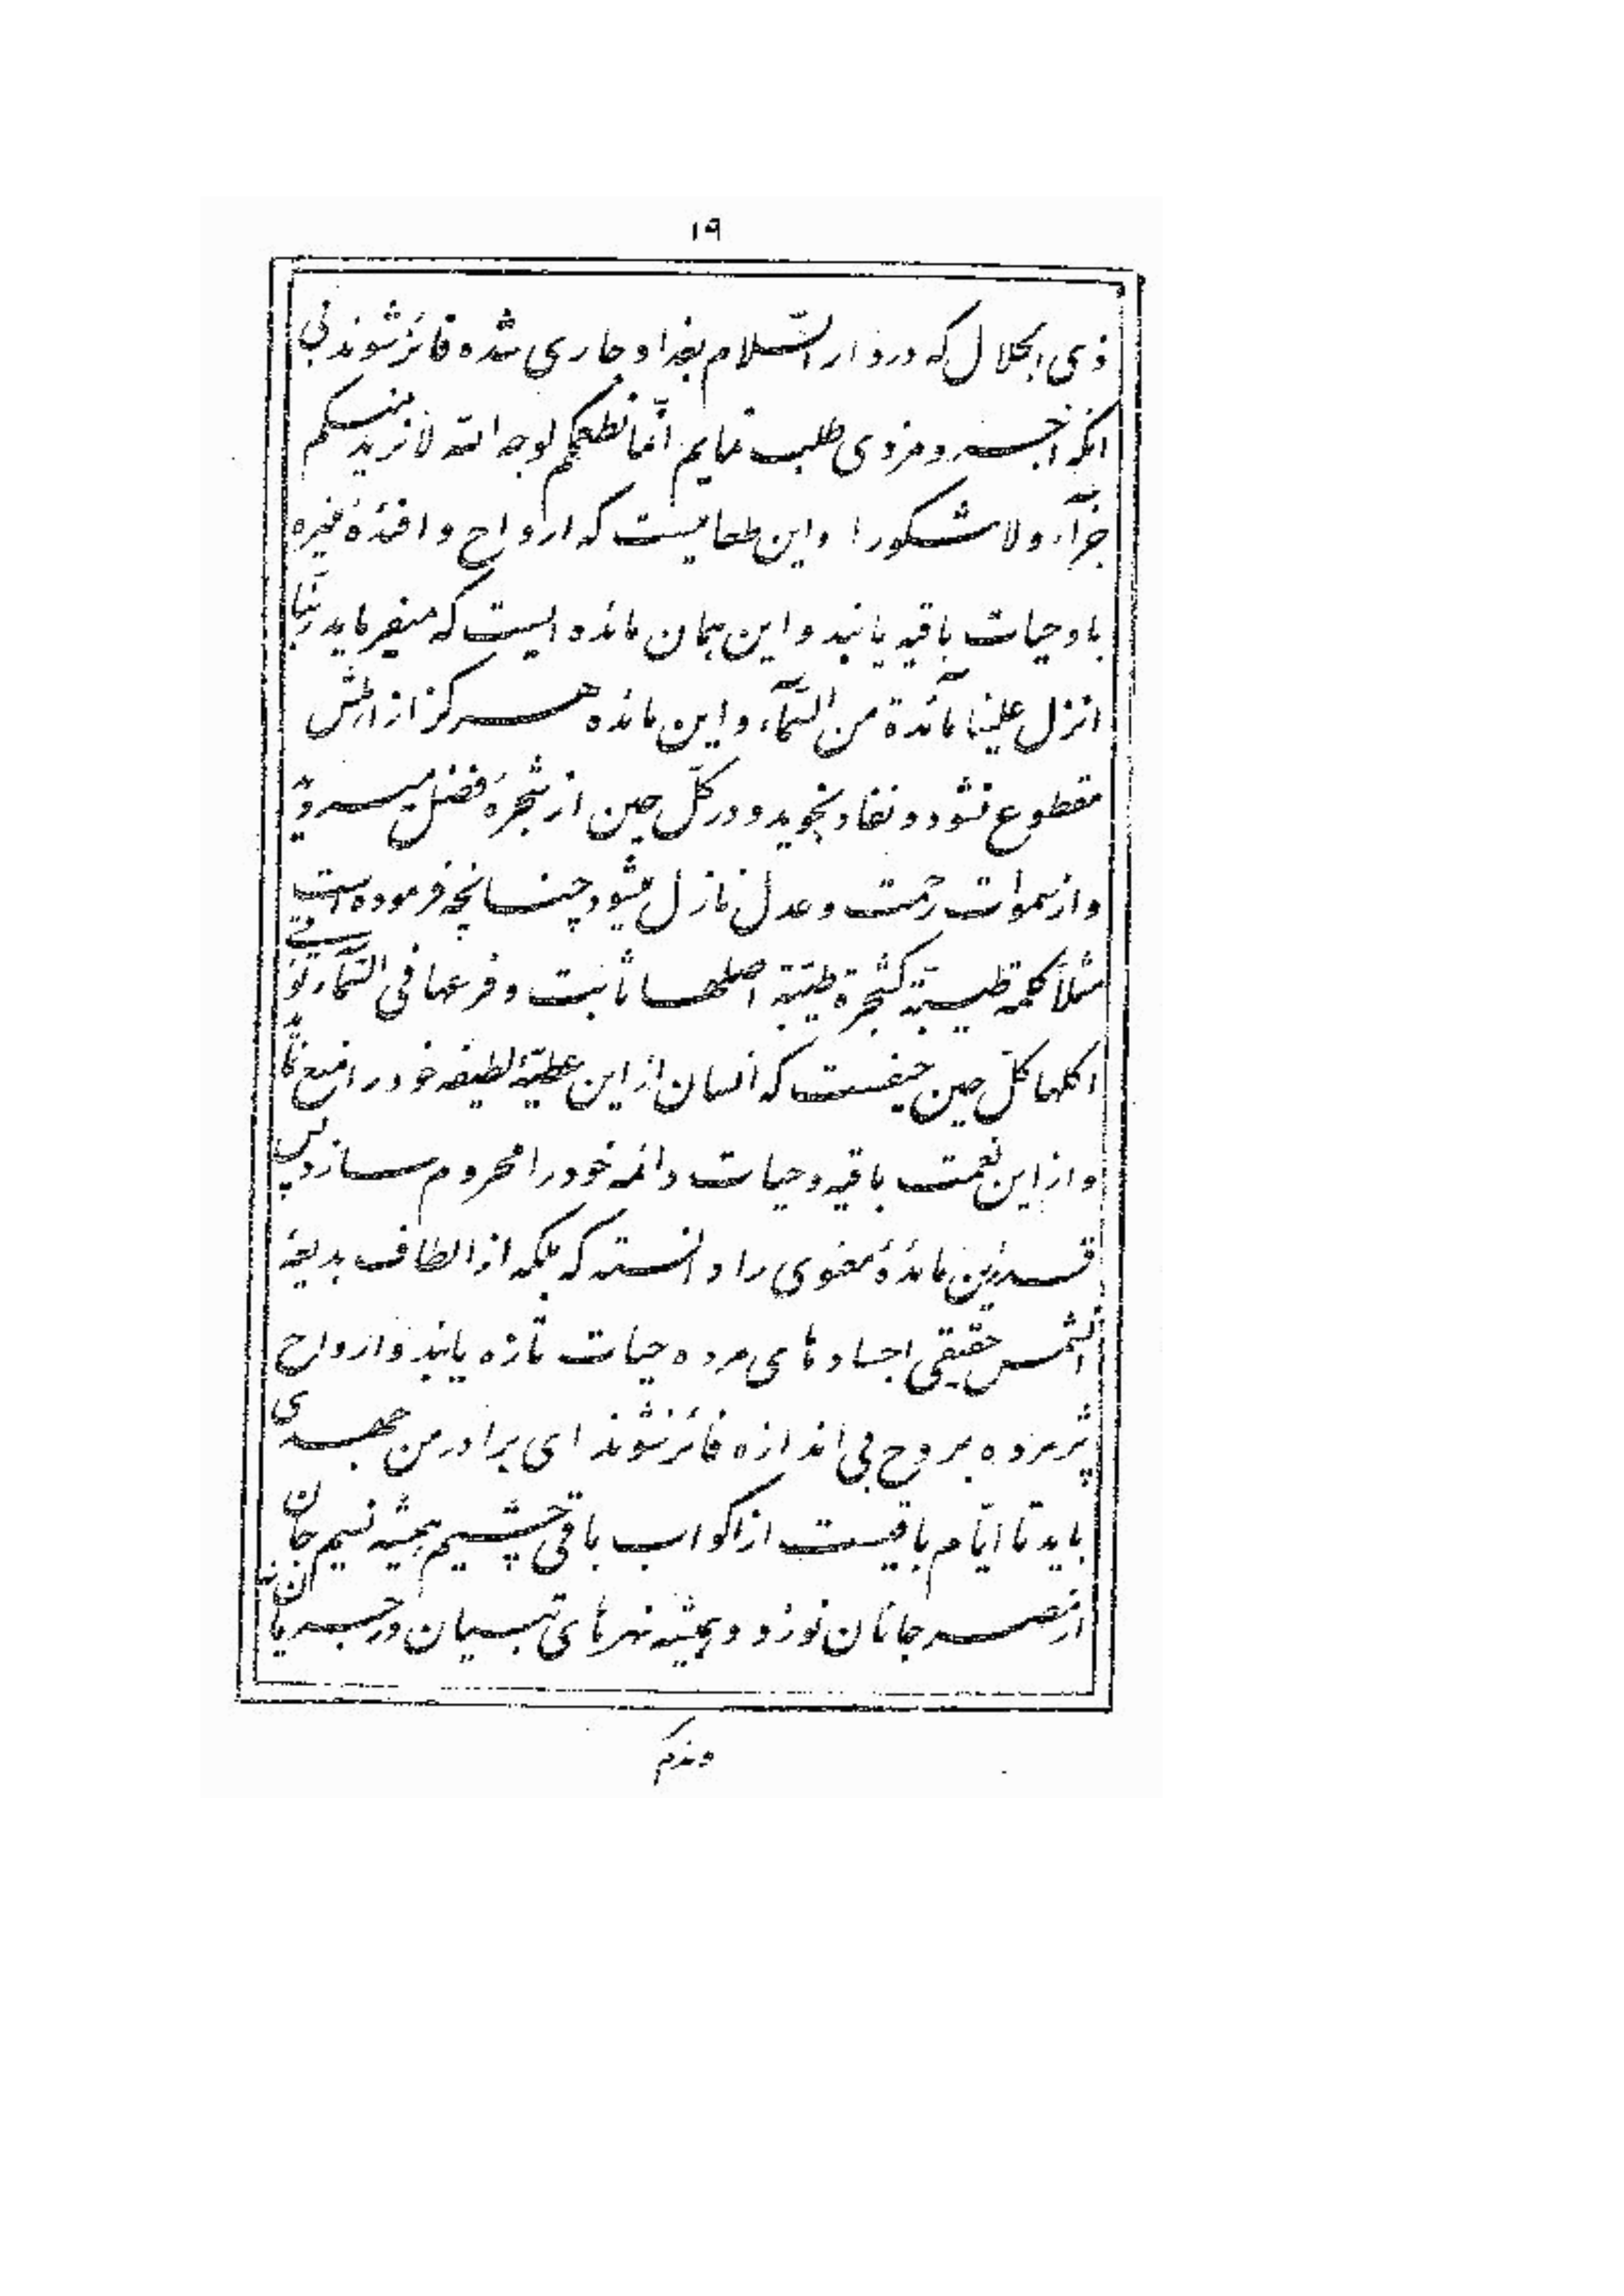 ۱۹
ذی الجلال که در دار السّلام بغداد جاری شده فائز شوند بی
انکه اجر و مزدی طلب نمایم انّما نطعمکم لوجه اللّه لا نرید منکم
جزآء ولا شکورا و این طعامیست که ارواح و افئدهٔ منیره
باو حیات باقیه یابند و این همان مائده ایست که میفرماید ربّنا
انزل علینا مآئدة من السّمآء و این مائده هرگز از اهلش
مقطوع نشود و نفاد نجوید و در کلّ حین از شجرهٔ فضل میروید
و از سموات رحمت و عدل نازل میشود چنانچه فرموده است
مثلاً کلمة طیّبة کشجرة طیّبة اصلها ثابت و فرعها فی السّمآء تؤتی
اکلها کلّ حین حیفست که انسان از این عطیّهٔ لطیفه خود را منع نماید
و از این نعمت باقیه و حیات دائمه خود را محروم سازد پس
قدر این مائدهٔ معنوی را دانسته که بلکه از الطاف بدیعهٔ
آن شمس حقیقی اجسادهای مرده حیات تازه یابند و ارواح
پژمرده بروح بی اندازه فائز شوند ای برادر من جهدی
باید تا ایّام باقیست از اکواب باقی چشیم همیشه نسیم جان
از مصر جانان نوزد و همیشه نهرهای تبیان در جریان نه
و مدام